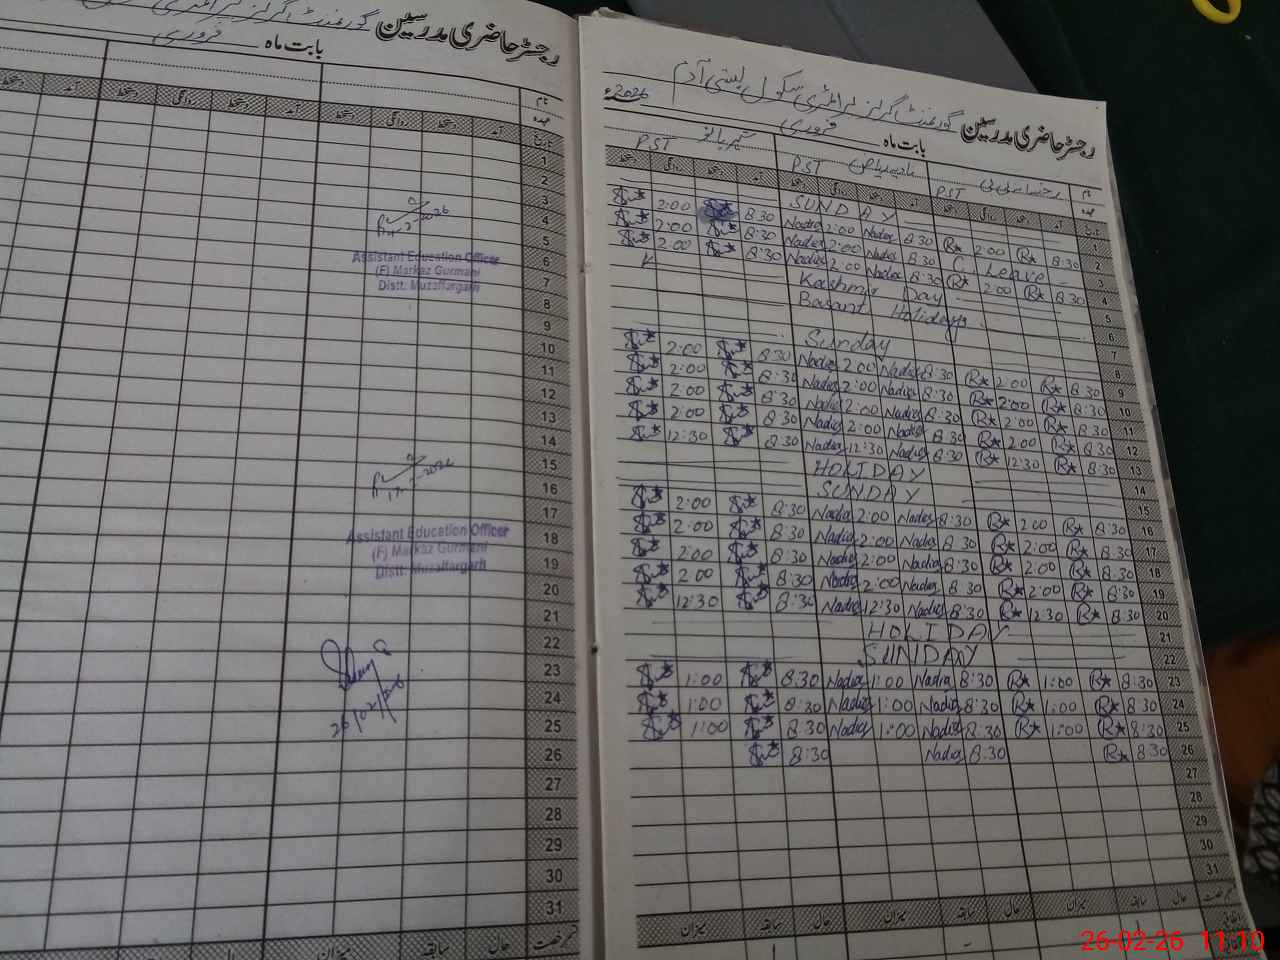 رجسٹر حاضری مدرسین گورنمنٹ گرلز پرائمری سکول بستی آدم
بابت ماہ فروری 2026ء
نام
عہدہ PST PST PST
تاریخ آمد دستخط روانگی دستخط آمد دستخط روانگی دستخط آمد دستخط روانگی دستخط
1 SUNDAY
2 8:30 2:00 8:30 Nadia 2:00 Nadia 8:30 2:00
3 C. Leave 8:30 Nadia 2:00 Nadia 8:30 2:00
4 8:30 2:00 8:30 Nadia 2:00 Nadia 8:30 2:00
5 Kashmir Day
6 Basant Holidays
7
8 Sunday
9 8:30 2:00 8:30 Nadia 2:00 Nadia 8:30 2:00
10 8:30 2:00 8:30 Nadia 2:00 Nadia 8:30 2:00
11 8:30 2:00 8:30 Nadia 2:00 Nadia 8:30 2:00
12 8:30 2:00 8:30 Nadia 2:00 Nadia 8:30 2:00
13 8:30 12:30 8:30 Nadia 12:30 Nadia 8:30 12:30
14 HOLIDAY
15 SUNDAY
16 8:30 2:00 8:30 Nadia 2:00 Nadia 8:30 2:00
17 8:30 2:00 8:30 Nadia 2:00 Nadia 8:30 2:00
18 8:30 2:00 8:30 Nadia 2:00 Nadia 8:30 2:00
19 8:30 2:00 8:30 Nadia 2:00 Nadia 8:30 2:00
20 8:30 12:30 8:30 Nadia 12:30 Nadia 8:30 12:30
21 HOLIDAY
22 SUNDAY
23 8:30 1:00 8:30 Nadia 1:00 Nadia 8:30 1:00
24 8:30 1:00 8:30 Nadia 1:00 Nadia 8:30 1:00
25 8:30 1:00 8:30 Nadia 1:00 Nadia 8:30 1:00
26 8:30 8:30 Nadia 8:30
27
28
29
30
31
حال سابقہ میزان حال سابقہ میزان
رجسٹر حاضری مدرسین گورنمنٹ گرلز پرائمری
بابت ماہ فروری
نام
عہدہ
تاریخ آمد دستخط روانگی دستخط آمد دستخط روانگی دستخط آمد
1
2
3
4
5
6 Assistant Education Officer
(F) Markaz Gurmani
7 Distt. Muzaffargarh
8
9
10
11
12
13
14
15
16
17
18 Assistant Education Officer
(F) Markaz Gurmani
19 Distt. Muzaffargarh
20
21
22
23
24
26/02/26
25
26
27
28
29
30
31
حال سابقہ میزان حال سابقہ
26-02-26 11:10